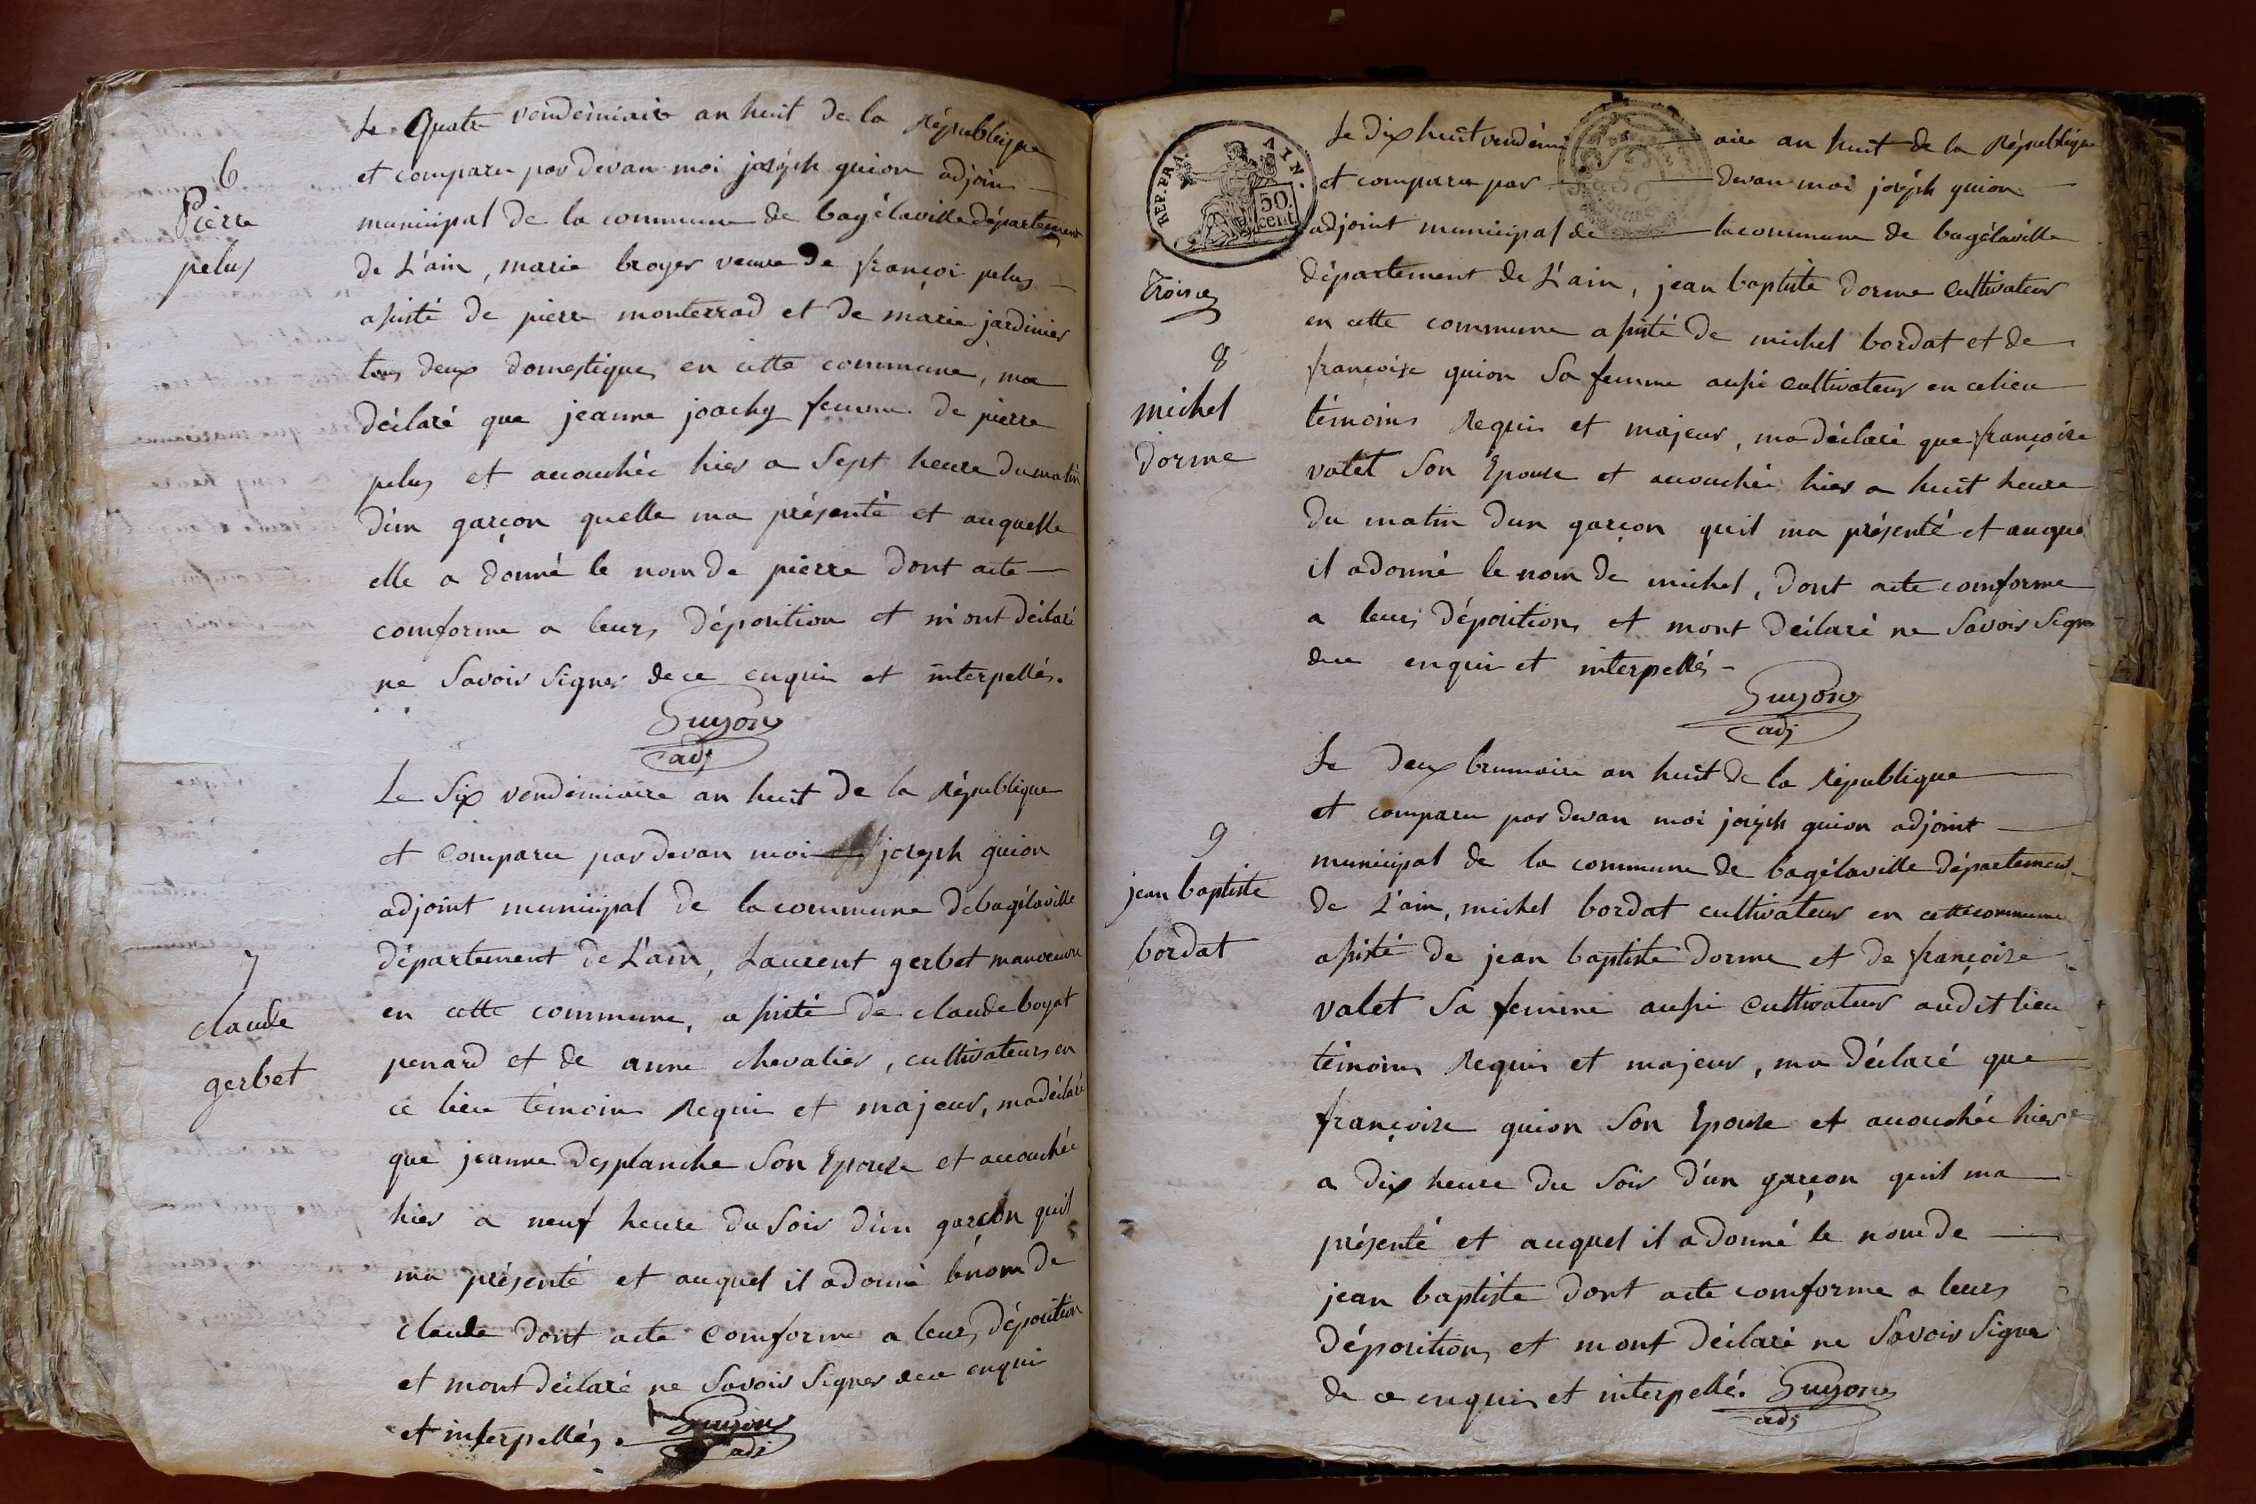 6
Pierre
pelus
Le Quatre vendémiaire an huit de la République
et comparu par devan moi joséph guion adjoin
municipal de la commune de bagélaville département
de L'ain, marie broyer veuve de françoi pelus
assisté de pierre monterrad et de marie jardinier
tous deux domestiques en cette commune, ma
déclaré que jeanne joachy femme de pierre
pelus et acouchée hier a Sept heure du matin
d'un garçon quelle ma présenté et auquelle
elle a donné le nom de pierre dont acte
comforme a leurs déposition et m'ont déclaré
ne Savoir Signer de ce enquis et interpellés.
Guyon
adj
7
claude
gerbet
Le Six vendémiaire an huit de la République
et comparu par devan moi joseph guion
adjoint municipal de la commune de bagélaville
département de L'ain, Laurent gerbet manoeuvre
en cette commune, assisté de claude boyat
penard et de anne chevalier, cultivateurs en
ce lieu témoins Requis et majeur, ma déclaré
que jeanne desplanche Son Epouse et acouchée
hier a neuf heure du Soir d'un garçon quil
ma présenté et auquel il a donné le nom de
claude dont acte comforme a leurs déposition
et mont déclaré ne Savoir Signer de ce enqui
et interpellés.
Guyon
adj
REP. FRA. AIN.
50 cent.
Troise
8
michel
dorme
Le dix huit vendémiaire an huit de la République
et comparu par devan moi joséph guion
adjoint municipal de la commune de bagélaville
département de L'ain, jean baptiste dorme Cultivateur
en cette commune assisté de michel bordat et de
françoise guion Sa femme aussi cultivateur en ce lieu
témoins Requis et majeur, ma déclaré que françoise
valet Son Epouse et acouchée hier a huit heure
du matin dun garçon quil ma présenté et auque
il a donné le nom de michel, dont acte comforme
a leurs dépositions et mont déclaré ne Savoir Signe
de ce enquis et interpellés
Guyon
adj
9
jean baptiste
bordat
Le deux brumaire an huit de la République
et comparu par devan moi joséph guion adjoint
municipal de la commune de bagélaville département
de L'ain, michel bordat cultivateur en cette commune
assisté de jean baptiste dorme et de françoise
valet Sa femme aussi Cultivateur audit lieu
témoins Requis et majeur, ma déclaré que
françoise guion Son Epouse et acouchée hier
a dix heure du Soir d'un garçon quil ma
présenté et auquel il a donné le nom de
jean baptiste dont acte comforme a leurs
dépositions et mont déclaré ne Savoir Signer
de ce enquis et interpellé. Guyon
adj